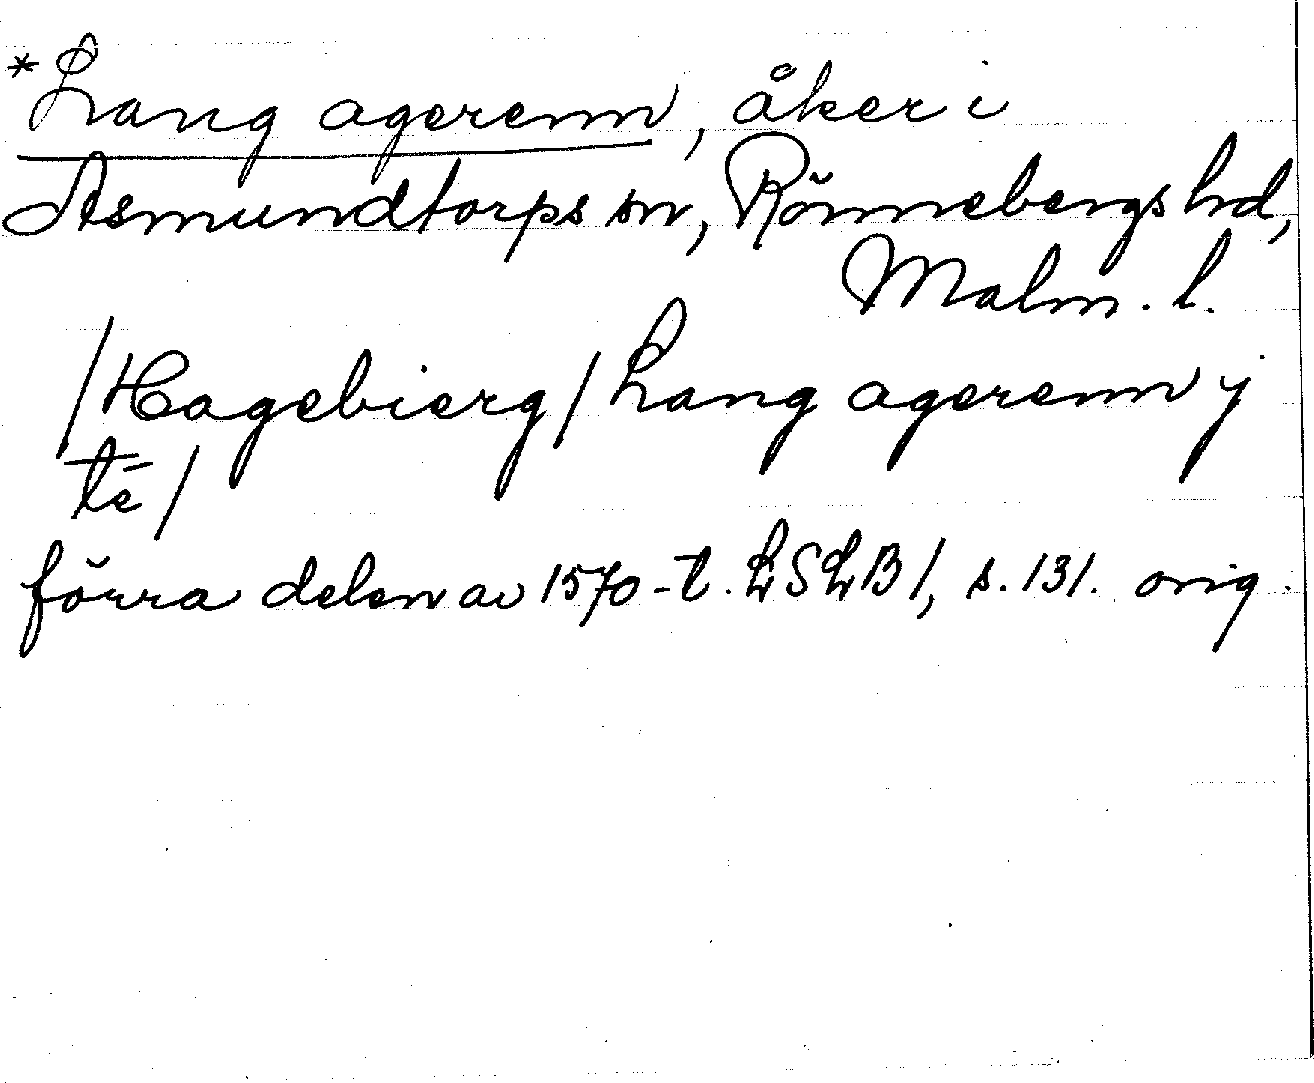 *Lang agerenn, åker i
Asmundtorps sn, Rönnebergs hd,
Malm. l.
/Hagebierg/ Lang agerenn y
té/
förra delen av 1570-t. LSLB/, s. 131. orig.